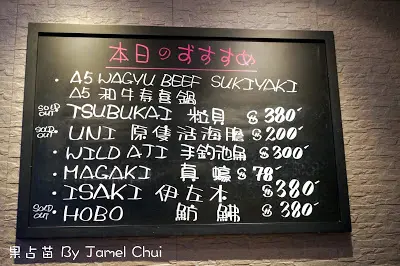 本日のおすすめ
・A5 WAGYU BEEF SUKIYAKI
A5 和牛寿喜鍋
SOLD OUT ・TSUBUKAI 粒貝 $380
SOLD OUT ・UNI 原隻活海膽 $200
・WILD AJI 手釣池魚 $300
・MAGAKI 真蠔 $78
・ISAKI 伊左木 $380
SOLD OUT ・HOBO 魴鮄 $380
果占苗 By Jamel Chui